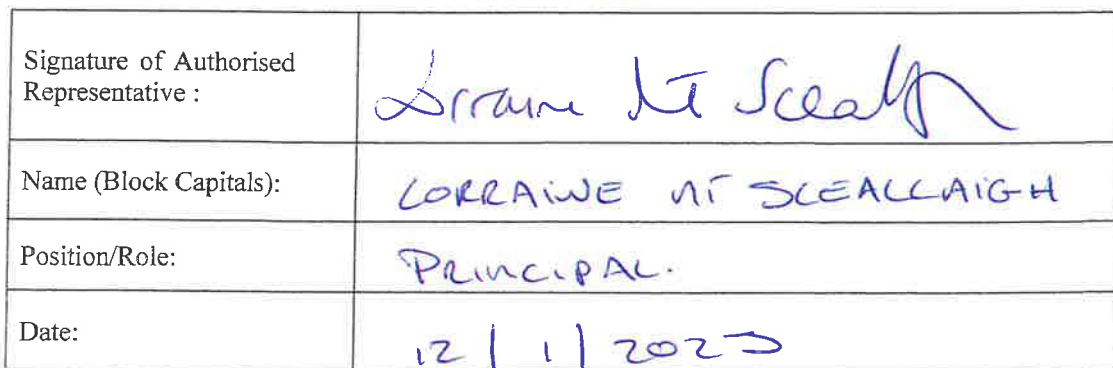 Signature of Authorised
Representative :
Lorraine Ní Sceall
Name (Block Capitals):
LORRAINE NÍ SCEALLAIGH
Position/Role:
PRINCIPAL.
Date:
12 / 1 / 2023